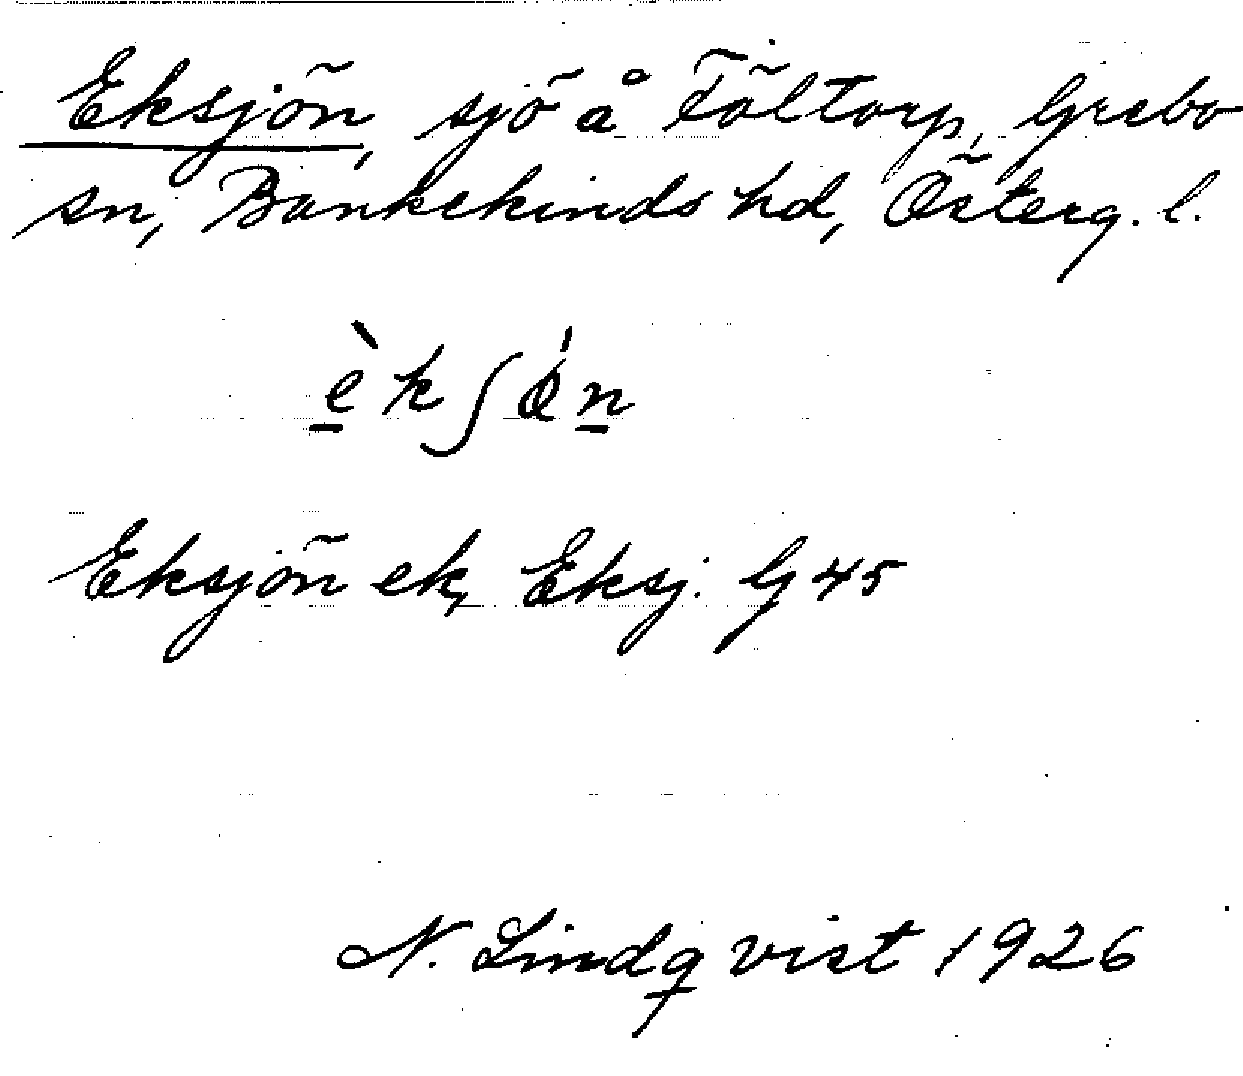 Eksjön, sjö å Föltorp, Grebo
sn, Bankekinds hd, Österg. l.
èkʃǿn
Eksjön ek, Eksj. G 45
N. Lindqvist 1926